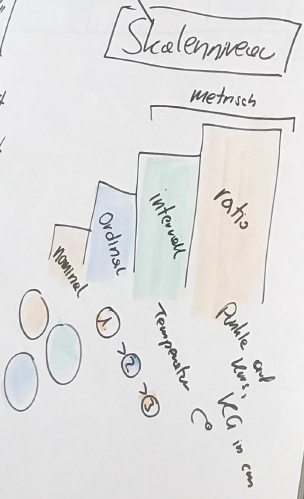 Skalenniveau
metrisch
nominal
Ordinal
intervall
ratio
1. → 2 → 3
Temperatur C°
Punkte auf
KG in cm